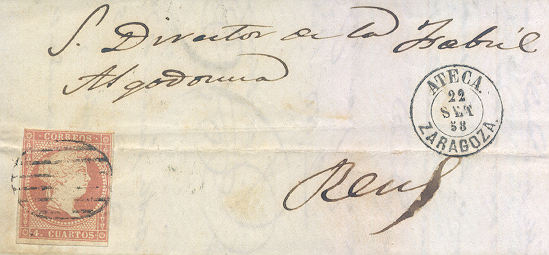 S. Director de la Fabril
Algodonera
ATECA.
22
SET
58
ZARAGOZA.
CORREOS
4. CUARTOS
Reus